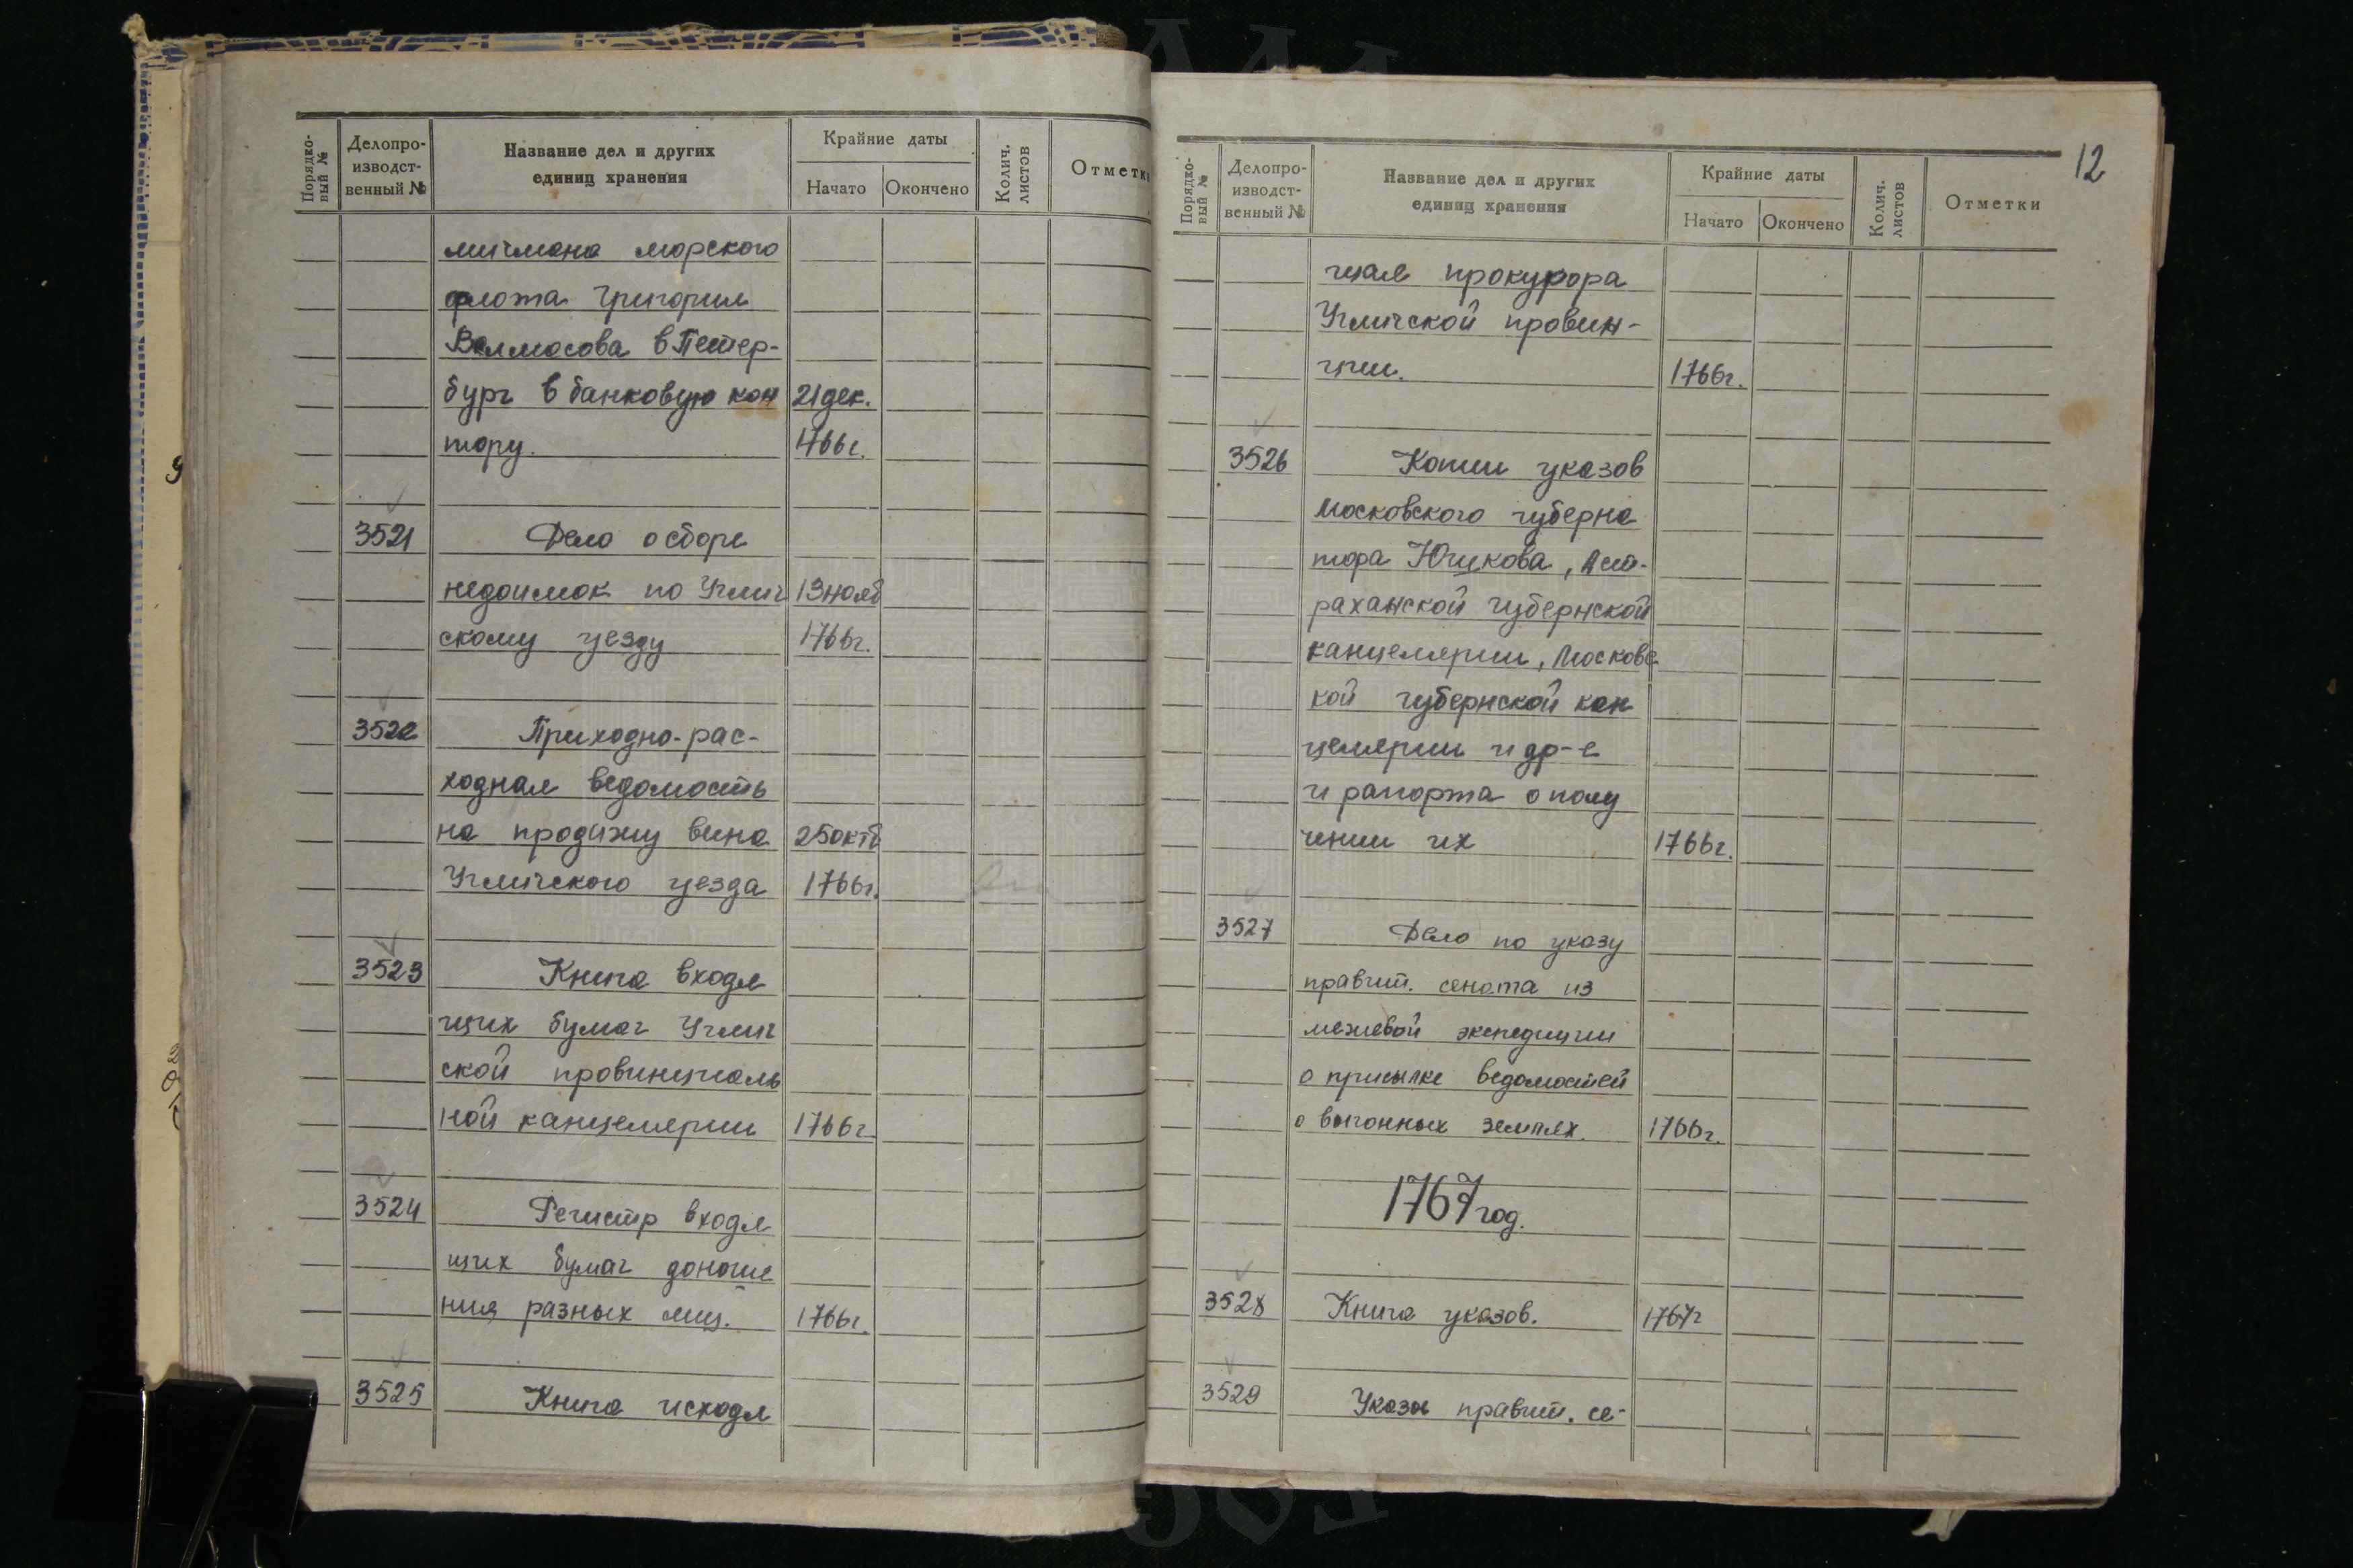 Порядко-
вый №
Делопро-
изводст-
венный №
Название дел и других
единиц хранения
Крайние даты
Начато
Окончено
Колич.
листов
Отметки
мичмана морского
флота Григория
Валмасова в Петер-
бург в банковую кон 21 дек.
тору. 1766г.
3521 Дело о сборе
недоимок по Углич 13 нояб
скому уезду 1766г.
3522 Приходно-рас-
ходная ведомость
на продажу вина 25 октб
Угличского уезда 1766г.
3523 Книга входя
щих бумаг Углич
ской провинциаль
ной канцелярии 1766г.
3524 Регистр входя
щих бумаг доноше
ния разных лиц. 1766г.
3525 Книга исходя
12
Порядко-
вый №
Делопро-
изводст-
венный №
Название дел и других
единиц хранения
Крайние даты
Начато
Окончено
Колич.
листов
Отметки
щая прокурора
Угличской провин-
ции. 1766г.
3526 Копии указов
Московского губерна
тора Юшкова, Аст-
раханской губернской
канцелярии, Московс
кой губернской кан
целярии и др-е
и рапорта о полу
чении их 1766г.
3527 Дело по указу
правит. сената из
межевой экспедиции
о присылке ведомостей
о выгонных землях. 1766г.
1767 год.
3528 Книга указов. 1767г
3529 Указы правит. се-